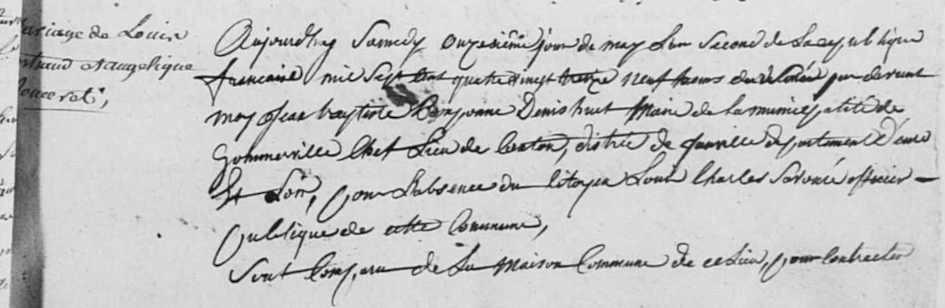 Mariage de Louis
et angelique
Aujourdhuy Samedy onzesieme jour de may L'an Second de La republique
francaise mil Sept Cent quatre vingt treize neuf heures du matin par devant
moy Jean baptiste Denis huet Maire de la municipalité de
Gommerville Chef Lieu de Canton, district de janville departement d'eure
Et Loir, pour L'absence du Citoyen Louis Charles officier
publique de cette Commune,
Sont Comparu de La Maison Commune de ce Lieu, pour Contracter